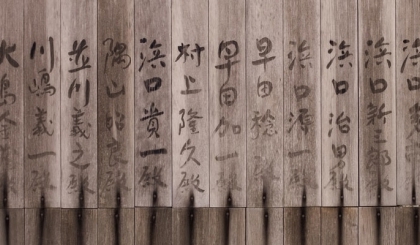 浜口
浜口新三郎殿
浜口治男殿
浜口源一殿
早田稔殿
早田加一殿
村上隆久殿
浜口貴一殿
隅山昭良殿
並川義之殿
川嶋義一殿